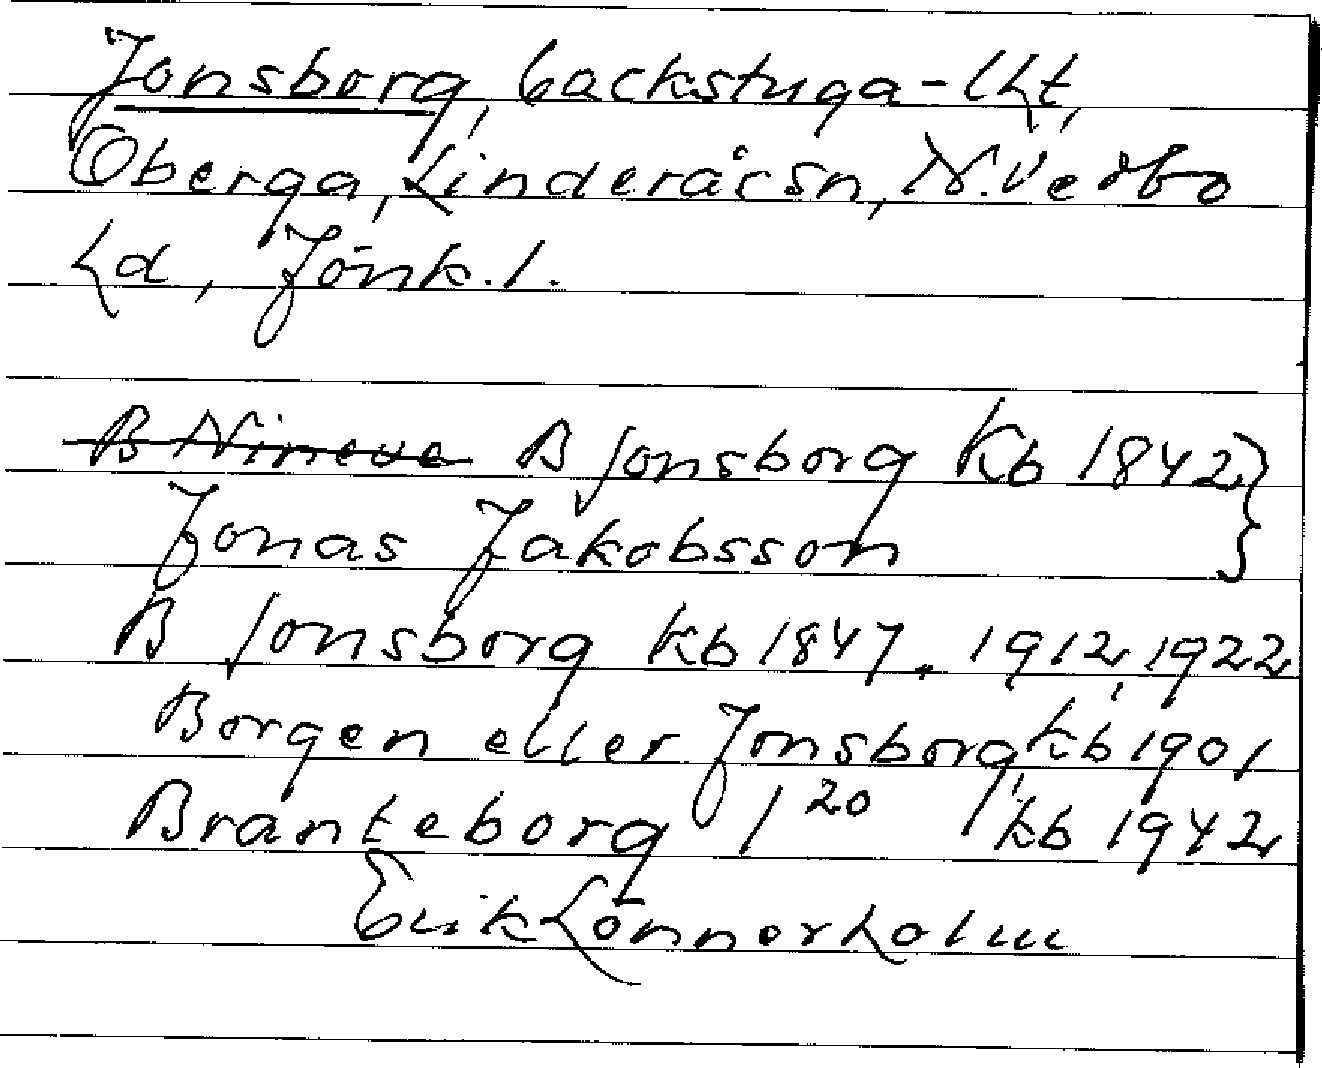 Jonsborg, backstuga-lht,
Oberga, Linderås sn, N. Vedbo
hd, Jönk. l.
B Nineve B Jonsborg kb 1842
Jonas Jakobsson
B Jonsborg kb 1847, 1912, 1922
Borgen eller Jonsborg, kb 1901
Bränteborg 1 20 kb 1942
Erik Lönnerholm